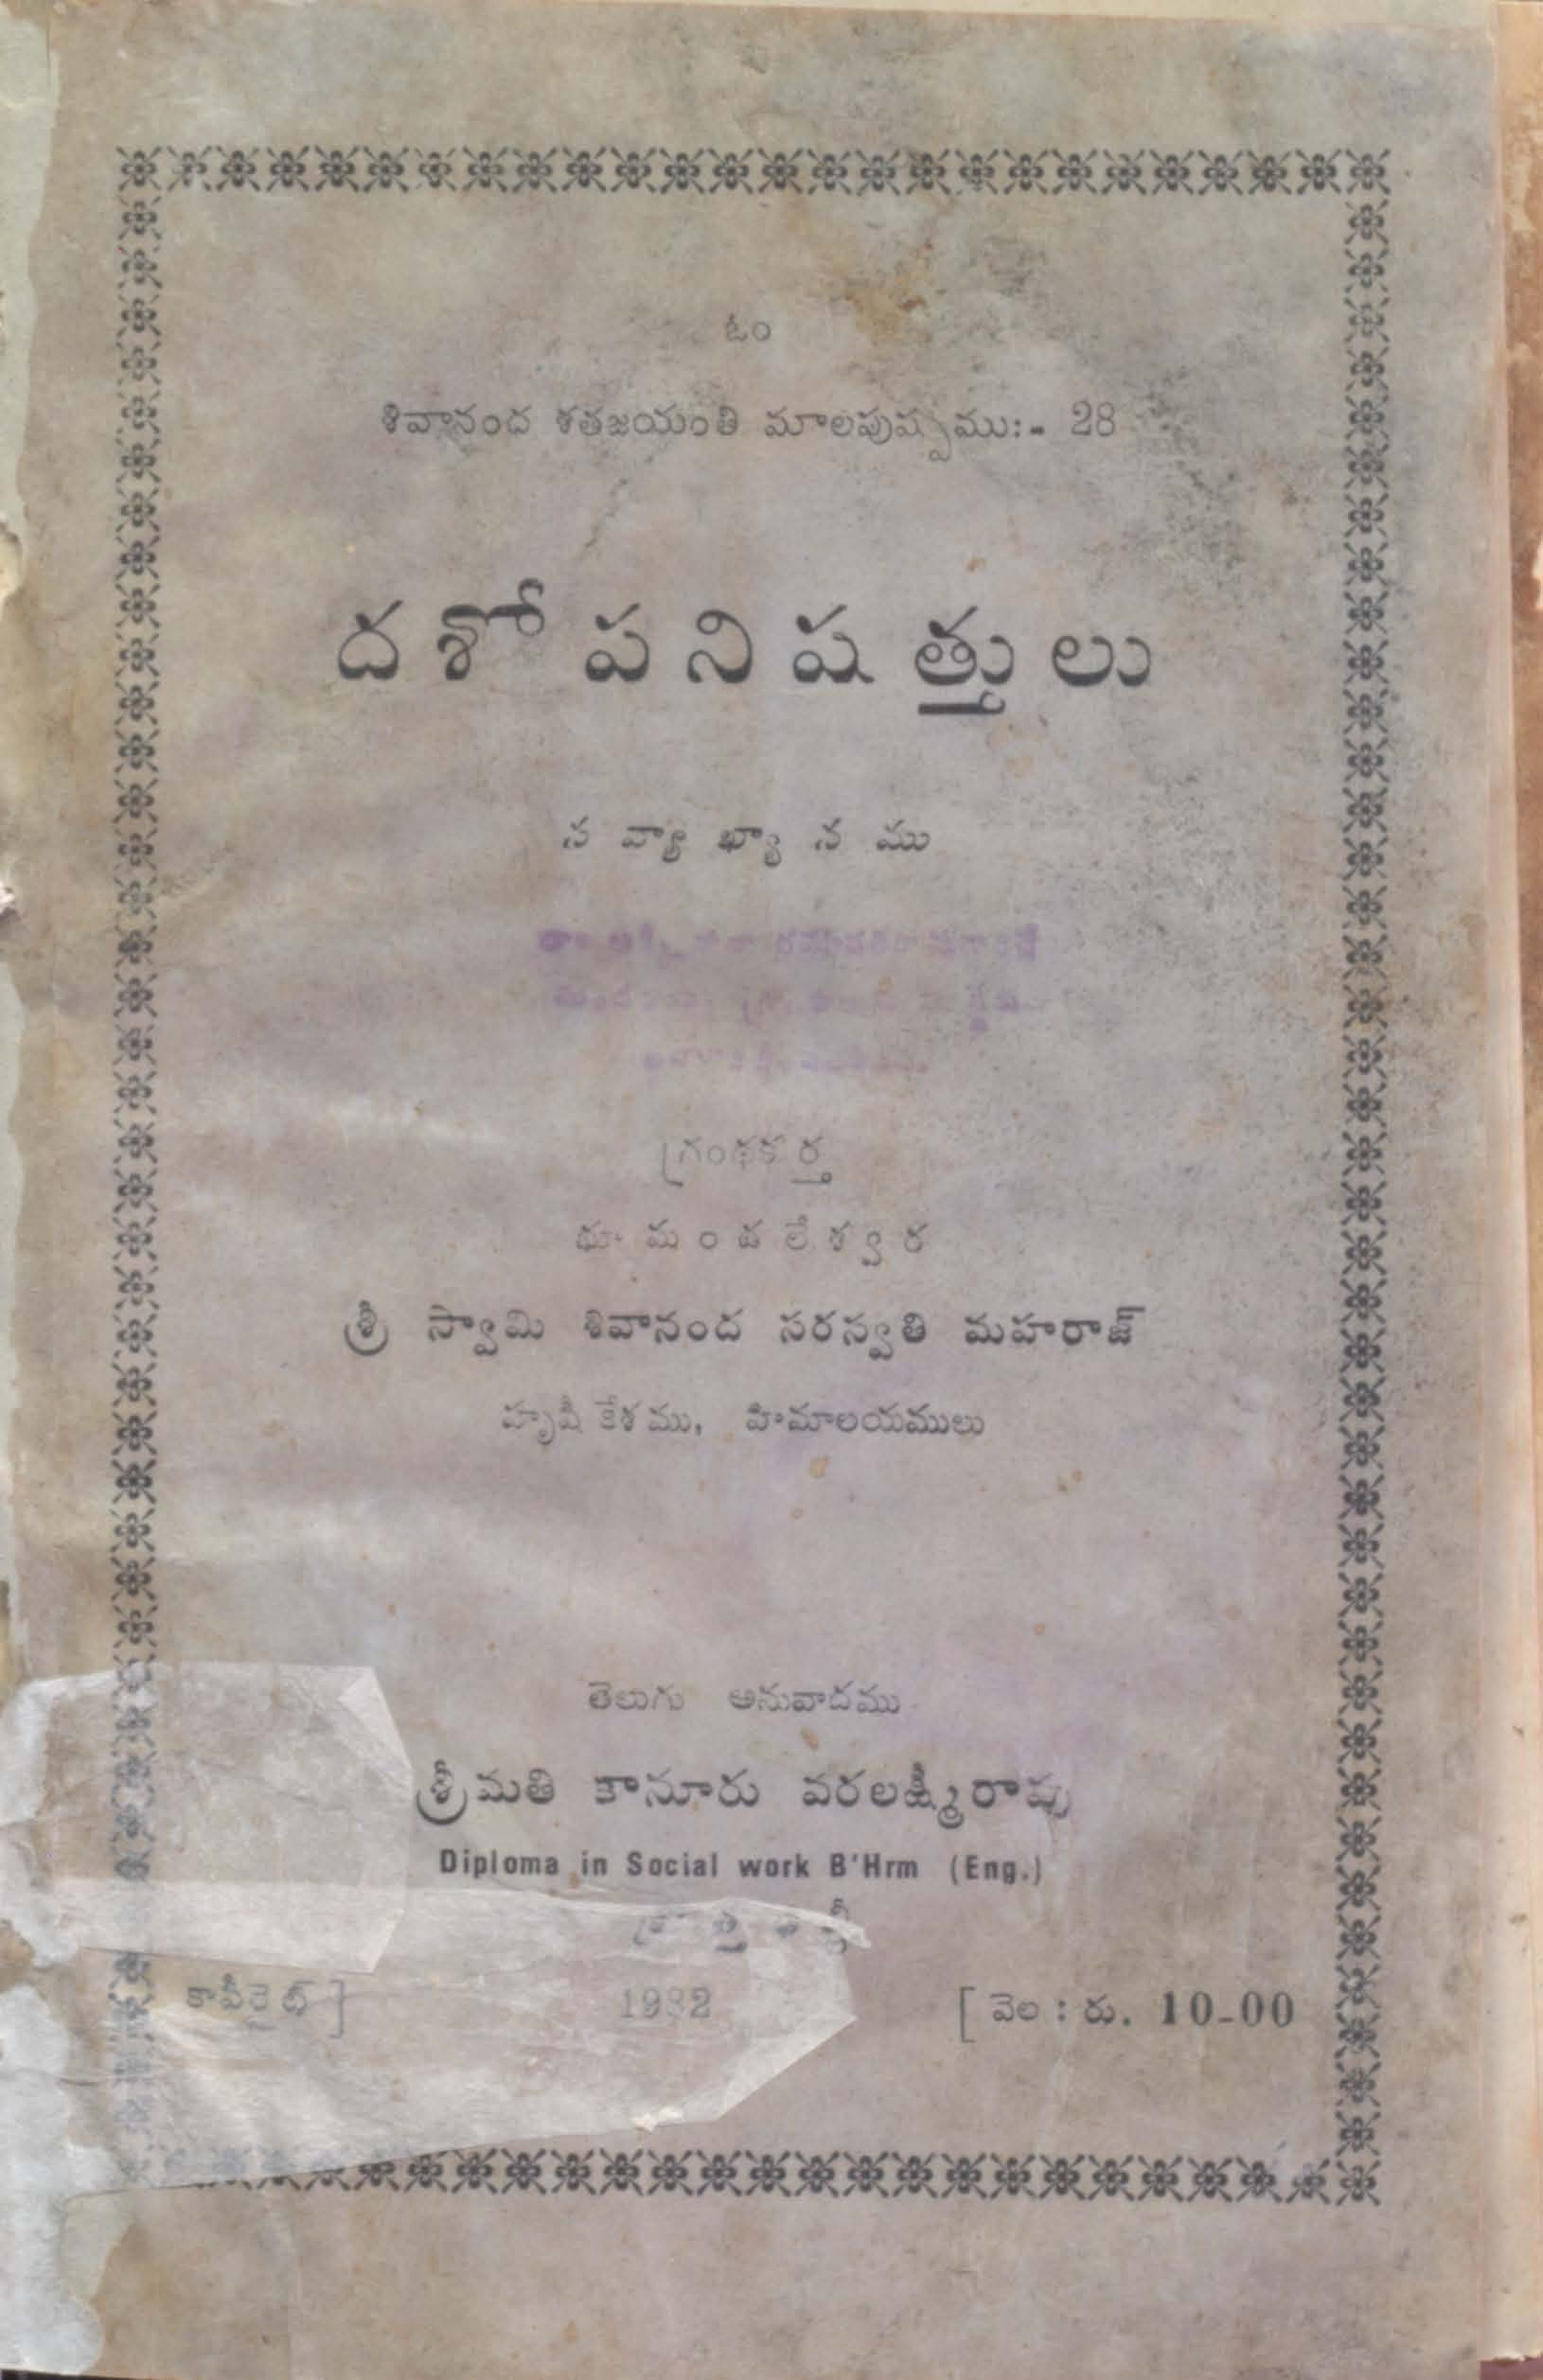 ఓం
శివానంద శతజయంతి మాలపుష్పము:- 28
దశోపనిషత్తులు
సవ్యాఖ్యానము
గ్రంథకర్త
భూమండలేశ్వర
శ్రీ స్వామి శివానంద సరస్వతి మహరాజ్
హృషీకేశము, హిమాలయములు
తెలుగు అనువాదము
శ్రీమతి కానూరు వరలక్ష్మీరావు
Diploma in Social work B'Hrm (Eng.)
కాపీరైట్]
1982
[వెల : రు. 10-00